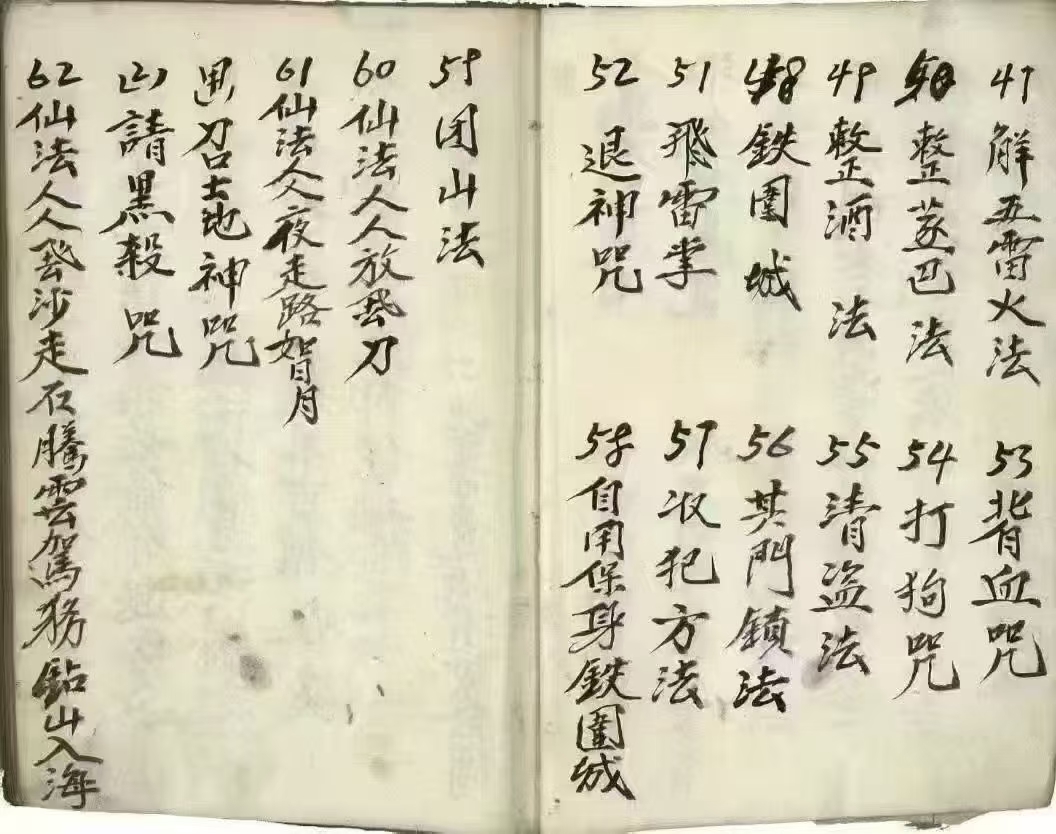 47 解五雷火法
整蒸巴法
49 整酒法
48 鉄圍城
51 飛雷掌
52 退神咒
53 背血咒
54 打狗咒
55 清盗法
56 其門鎖法
57 収犯方法
58 自用保身鉄圍城
59 团山法
60 仙法人人放飛刀
61 仙法人人夜走路如月
召土地神咒
請黑殺咒
62 仙法人人飛沙走石騰雲駕務鉆山入海